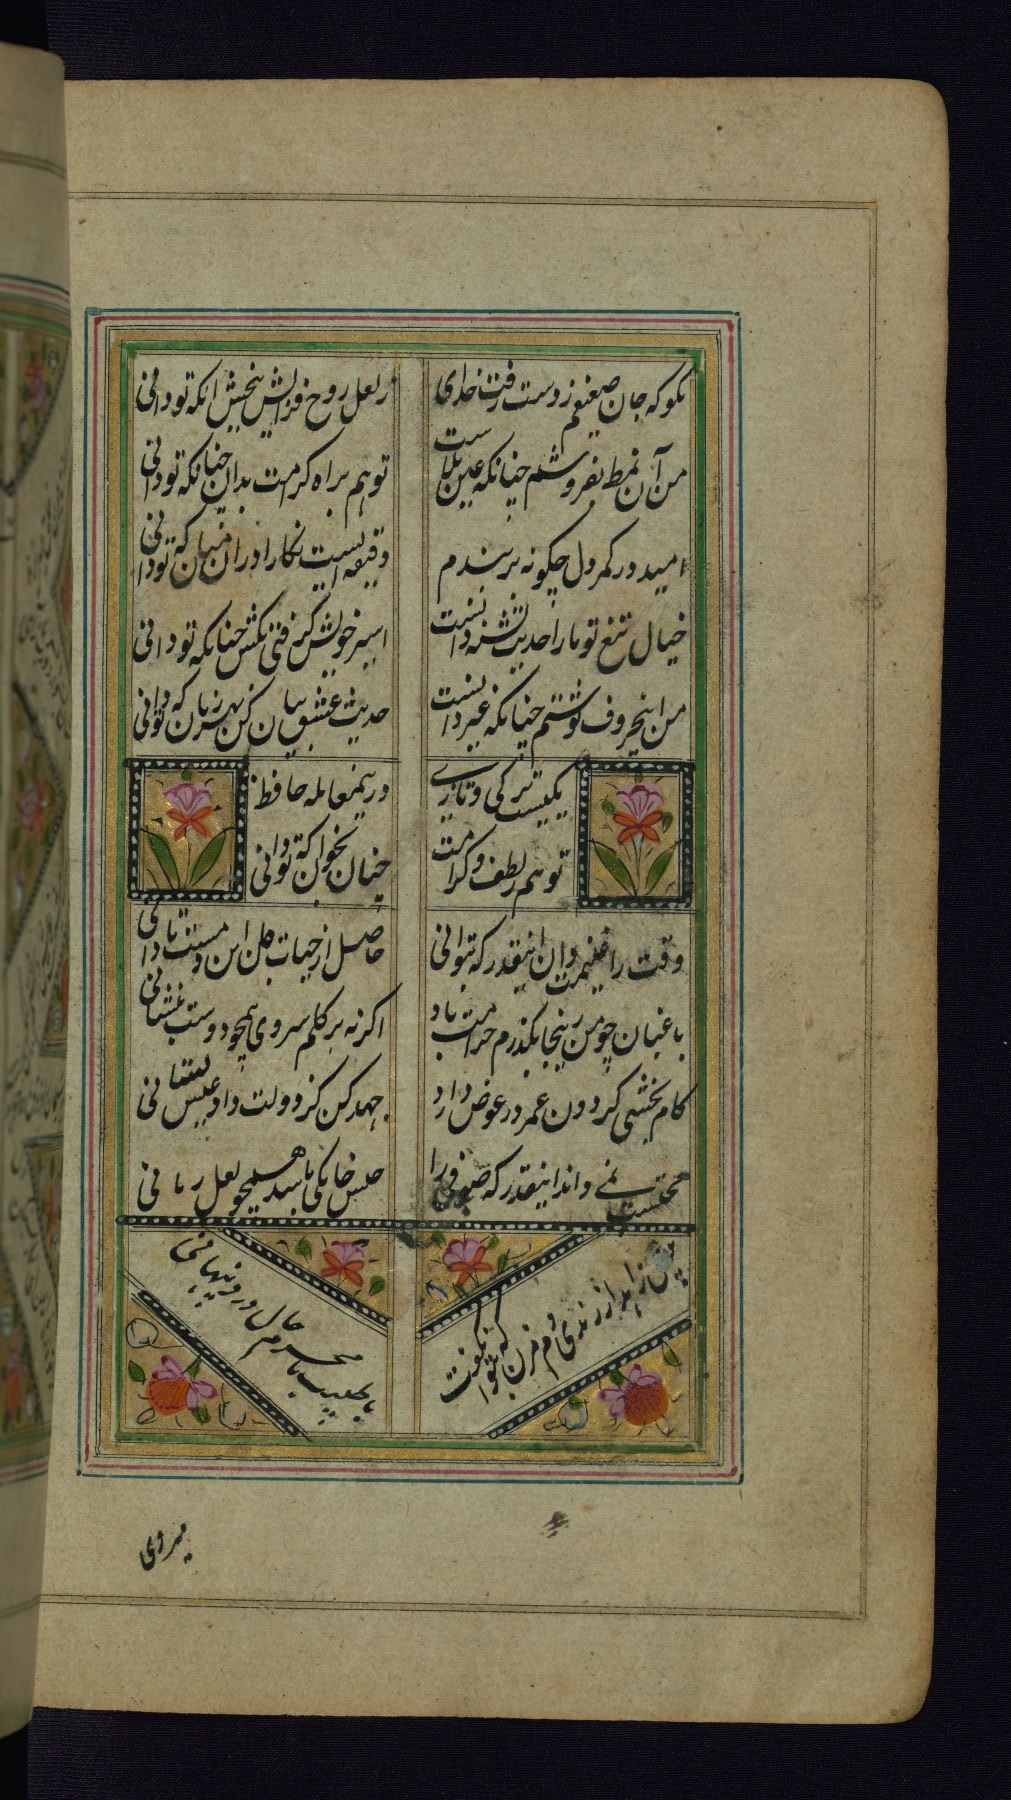 بگو که جان ضعیفم ز دست رفت خدای
ز لعل روح فزایش ببخش آنکه تو دانی
من آن نمط بفروشتم چنانکه عین بلاست
تو هم براه کرامت بدان چنانکه تو دانی
امید در کمر دل چگونه نرسندم
دقیقه ایست نگارا در ان میان که تو دانی
خیال تیغ تو با ما حدیث تشنه و آبست
اسیر خویش گرفتی بکش چنانکه تو دانی
من اینحروف نوشتم چنانکه غیر ندانست
حدیث عشق بیان کن بهر زبان که تو دانی
یکیست ترکی و تازی
درینمعامله حافظ
تو هم ز لطف و کرامت
چنان بخوان که تو دانی
وقت را غنیمت دان اینقدر که بتوانی
حاصل از حیات جان این دمست تا دانی
باغبان چو من زینجا بگذرم حرامت باد
اگر نه بر کلم سروی همچو دوست بنشانی
کام بخشی گردون عمر در عوض دارد
جهد کن کز دولت داد عیش بستانی
محتسب نمی داند اینقدر که صوفی را
جنس خانگی باشد همچو لعل رمانی
پیش زاهد از رندی دم مزن که نتوان گفت
با طبیب نامحرم حال درد پنهانی
میروی